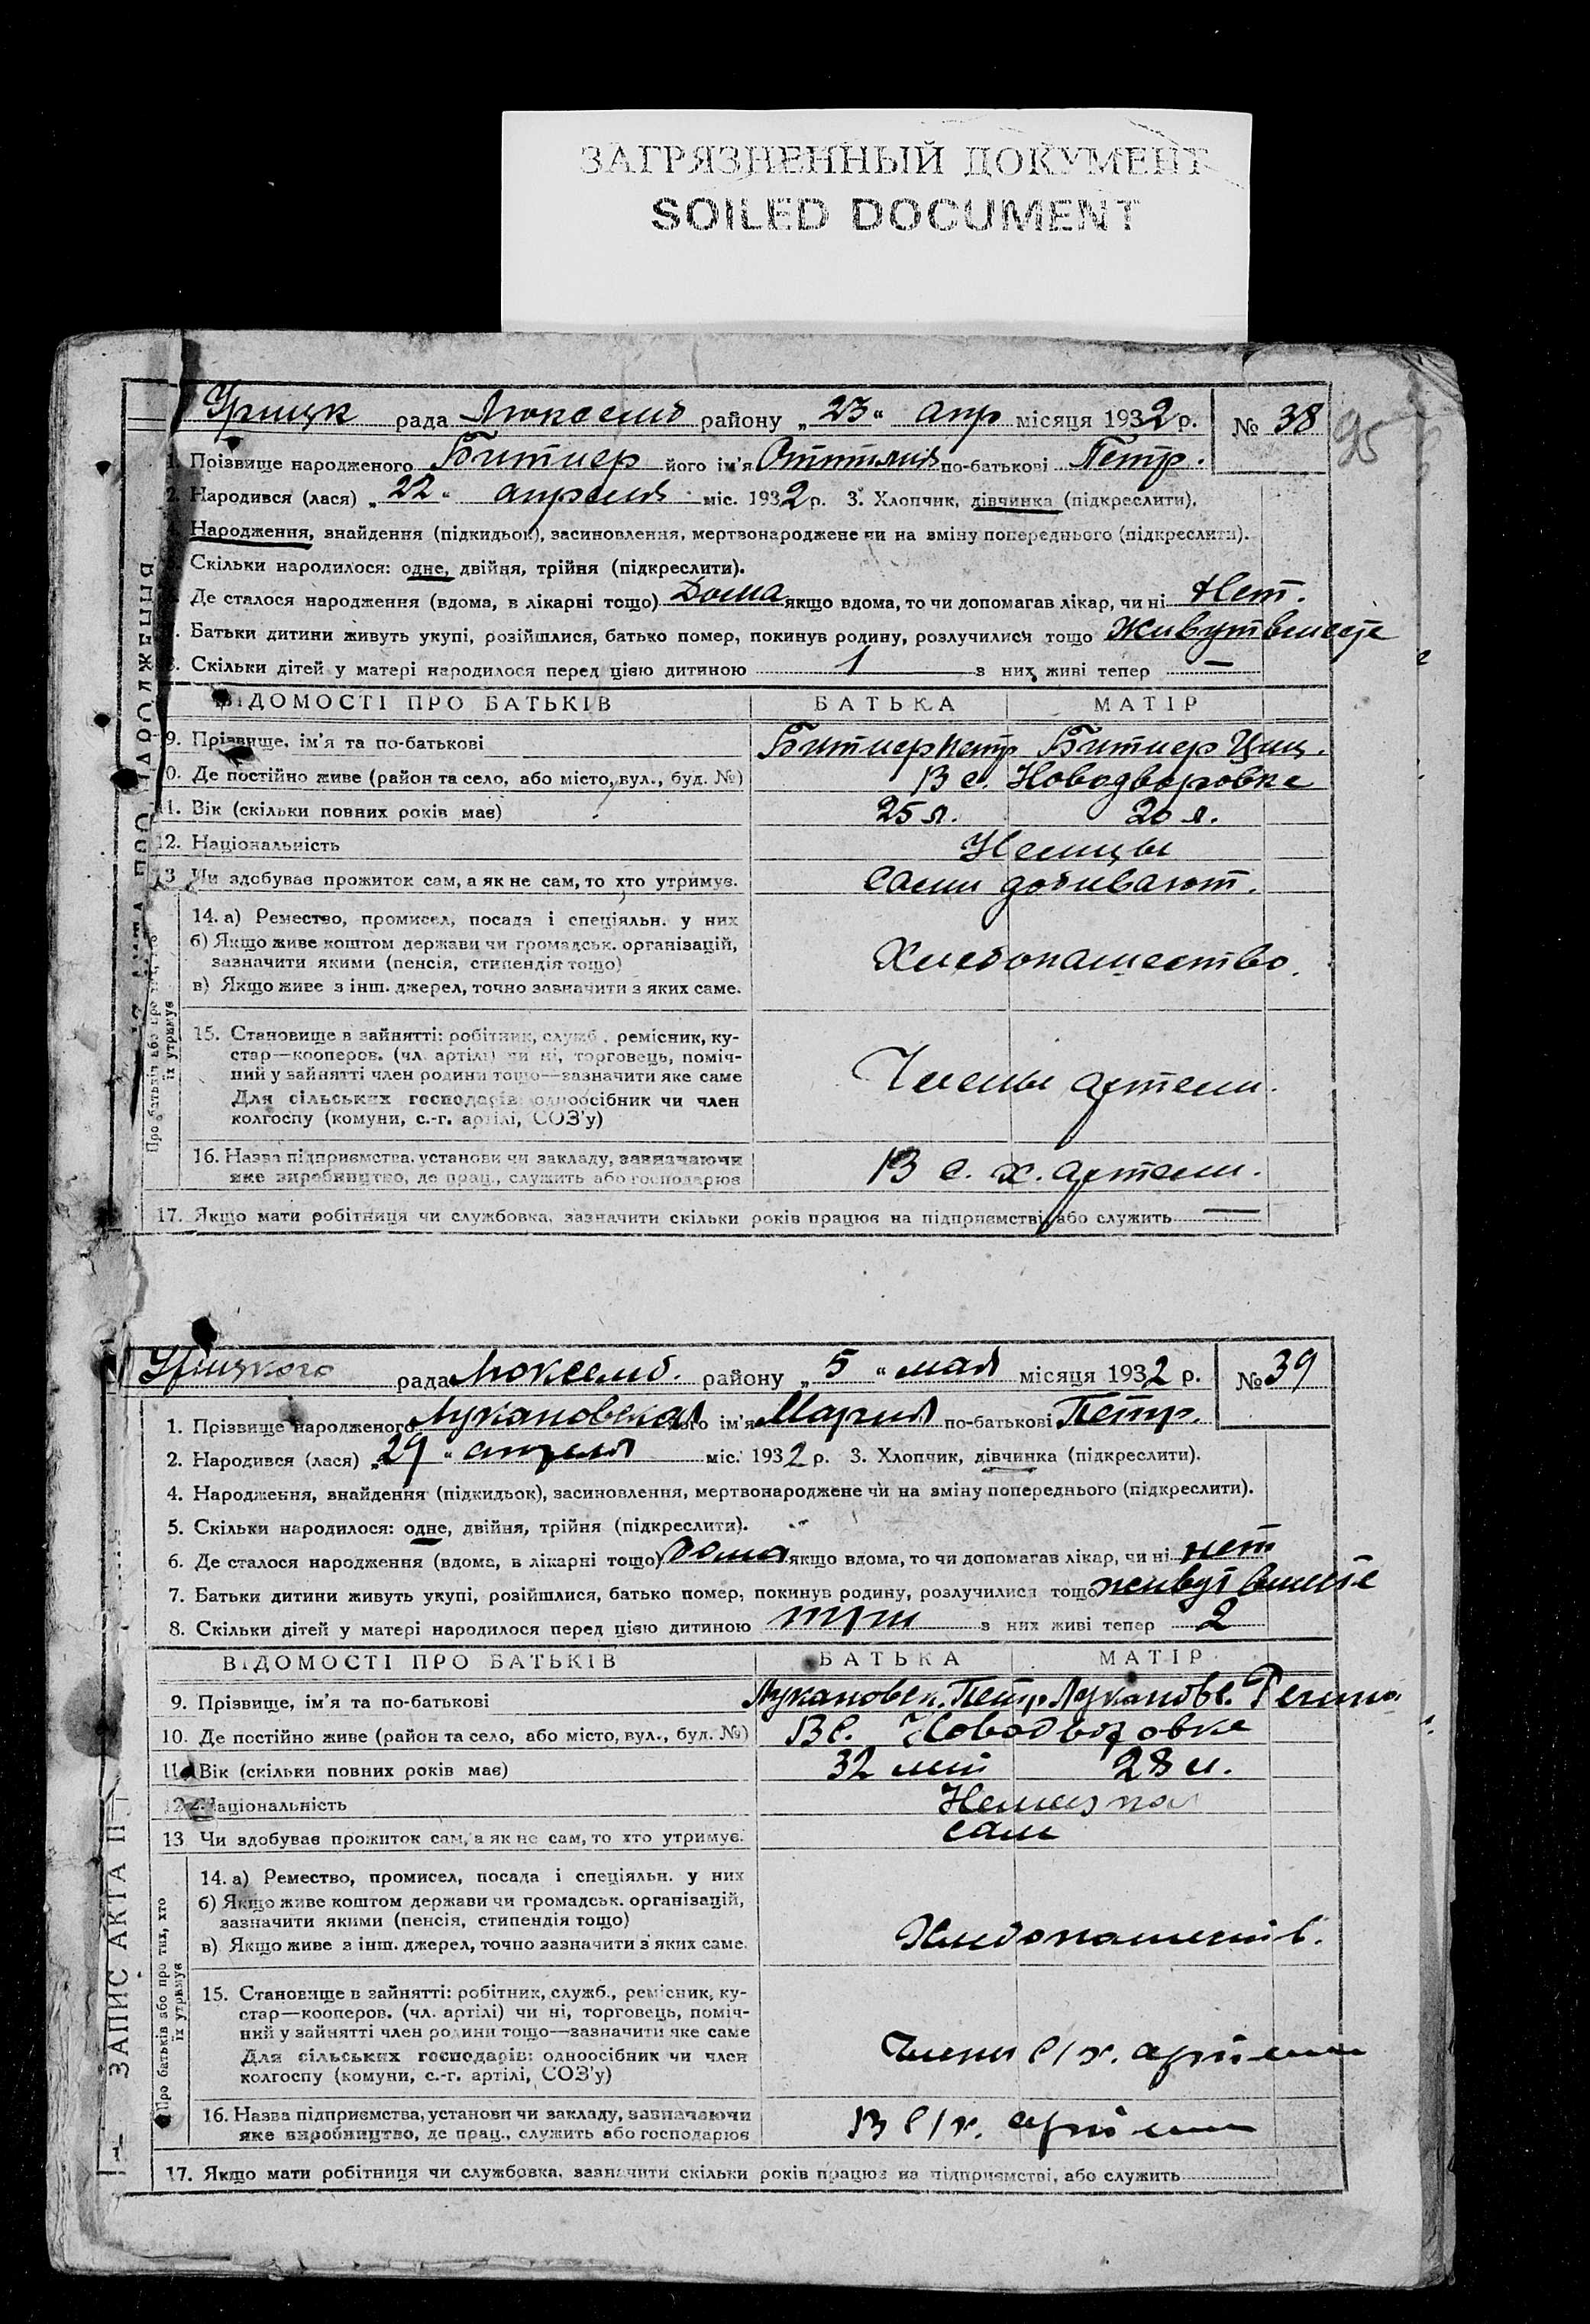 ЗАГРЯЗНЕННЫЙ ДОКУМЕНТ
SOILED DOCUMENT
Урицк рада Люксемб району „23“ апр місяця 1932 р. № 38
95
1. Прізвище народженого Битнер його ім'я Оттилия по-батькові Петр.
2. Народився (лася) „22“ апреля міс. 1932 р. 3. Хлопчик, дівчинка (підкреслити).
Народження, знайдення (підкидьок), засиновлення, мертвонароджене чи на зміну попереднього (підкреслити).
Скільки народилося: одне, двійня, трійня (підкреслити).
Де сталося народження (вдома, в лікарні тощо) Дома якщо вдома, то чи допомагав лікар, чи ні Нет.
Батьки дитини живуть укупі, розійшлися, батько помер, покинув родину, розлучилися тощо Живут вместе
8. Скільки дітей у матері народилося перед цією дитиною 1 з них живі тепер —
ВІДОМОСТІ ПРО БАТЬКІВ БАТЬКА МАТІР
9. Прізвище, ім'я та по-батькові Битнер Петр Битнер
10. Де постійно живе (район та село, або місто, вул., буд. №) В с. Новодворовке
11. Вік (скільки повних років має) 25 л. 20 л.
12. Національність Немцы
13 Чи здобуває прожиток сам, а як не сам, то хто утримує. Сами добивают.
Про батьків або про тих, хто їх утримує
14. а) Ремество, промисел, посада і спеціяльн. у них
б) Якщо живе коштом держави чи громадськ. організацій,
зазначити якими (пенсія, стипендія тощо) Хлебопашество.
в) Якщо живе з інш. джерел, точно зазначити з яких саме.
15. Становище в зайнятті: робітник, служб., ремісник, ку-
стар—кооперов. (чл. артілі) чи ні, торговець, поміч-
ний у зайнятті член родини тощо—зазначити яке саме Члены артели.
Для сільських господарів: одноосібник чи член
колгоспу (комуни, с.-г. артілі, СОЗ'у)
16. Назва підприємства, установи чи закладу, зазначаючи
яке виробництво, де прац., служить або господарює В с. х. артели.
17. Якщо мати робітниця чи службовка, зазначити скільки років працює на підприємстві, або служить —
Урицкого рада Люксемб. району „5“ мая місяця 1932 р. № 39
1. Прізвище народженого Лукановская його ім'я Мария по-батькові Петр.
2. Народився (лася) „29“ апреля міс. 1932 р. 3. Хлопчик, дівчинка (підкреслити).
4. Народження, знайдення (підкидьок), засиновлення, мертвонароджене чи на зміну попереднього (підкреслити).
5. Скільки народилося: одне, двійня, трійня (підкреслити).
6. Де сталося народження (вдома, в лікарні тощо) Дома якщо вдома, то чи допомагав лікар, чи ні нет
7. Батьки дитини живуть укупі, розійшлися, батько помер, покинув родину, розлучилися тощо живут вместе
8. Скільки дітей у матері народилося перед цією дитиною три з них живі тепер 2
ВІДОМОСТІ ПРО БАТЬКІВ БАТЬКА МАТІР
9. Прізвище, ім'я та по-батькові Лукановск. Петр Лукановс. Регина
10. Де постійно живе (район та село, або місто, вул., буд. №) В с. Новодворовке
11. Вік (скільки повних років має) 32 лет 28 л.
12. Національність
13 Чи здобуває прожиток сам, а як не сам, то хто утримує. сам
ЗАПИС АКТА П
Про батьків або про тих, хто їх утримує
14. а) Ремество, промисел, посада і спеціяльн. у них
б) Якщо живе коштом держави чи громадськ. організацій,
зазначити якими (пенсія, стипендія тощо) Хлебопашеств.
в) Якщо живе з інш. джерел, точно зазначити з яких саме.
15. Становище в зайнятті: робітник, служб., ремісник, ку-
стар—кооперов. (чл. артілі) чи ні, торговець, поміч-
ний у зайнятті член родини тощо—зазначити яке саме Члены с/х. артели
Для сільських господарів: одноосібник чи член
колгоспу (комуни, с.-г. артілі, СОЗ'у)
16. Назва підприємства, установи чи закладу, зазначаючи
яке виробництво, де прац., служить або господарює В с/х. артели
17. Якщо мати робітниця чи службовка, зазначити скільки років працює на підприємстві, або служить